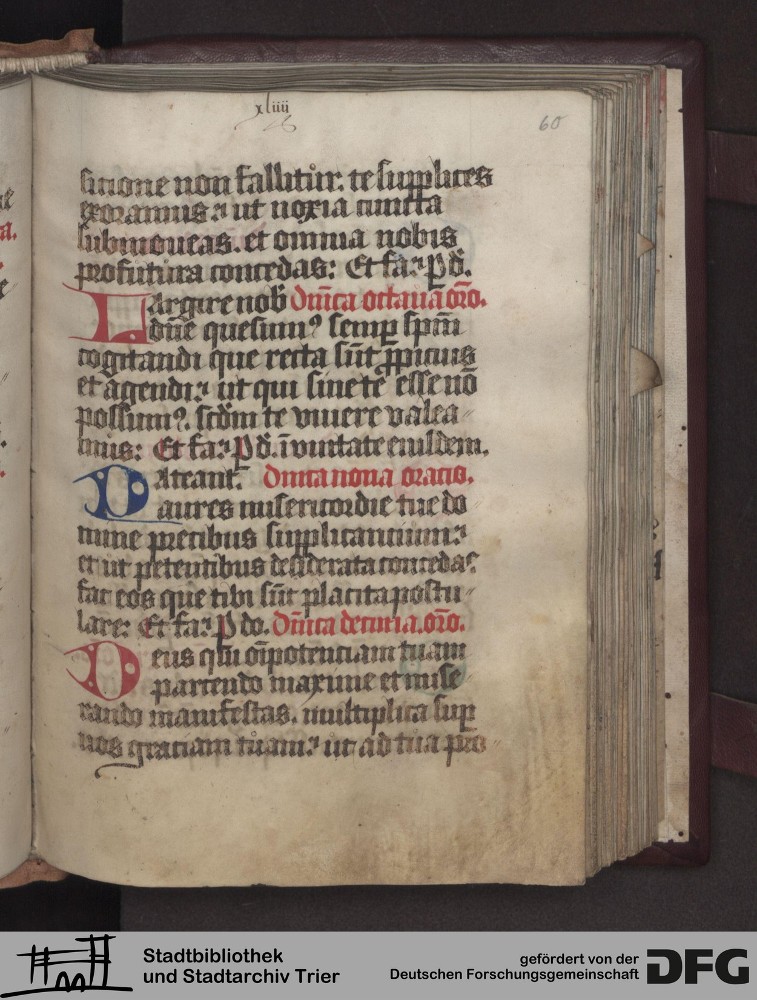 xliiii
60
sitione non fallitur. te supplices
exoramus: ut noxia cuncta
submoueas. et omnia nobis
profutura concedas: Et fa. P d.
Largire nob Dnica octaua oro.
dne quesum9 semp spm
cogitandi que recta sūt ppicius
et agendi: ut qui sine te esse nō
possum9. scdm te uiuere valea
mus: Et fa. P d. ī vnitate eiusdem.
Pateant. Dnica nona oratio.
aures misericordie tue do
mine precibus supplicantium:
et ut petentibus desiderata concedas
fac eos que tibi sūt placita postu
lare: Et fa. P do. Dnica decima. oro.
Deus qui oīpotenciam tuam
parcendo maxime et mise
rando manifestas. multiplica sup
nos graciam tuam: ut ad tua pro
Stadtbibliothek
und Stadtarchiv Trier
gefördert von der
Deutschen Forschungsgemeinschaft
DFG